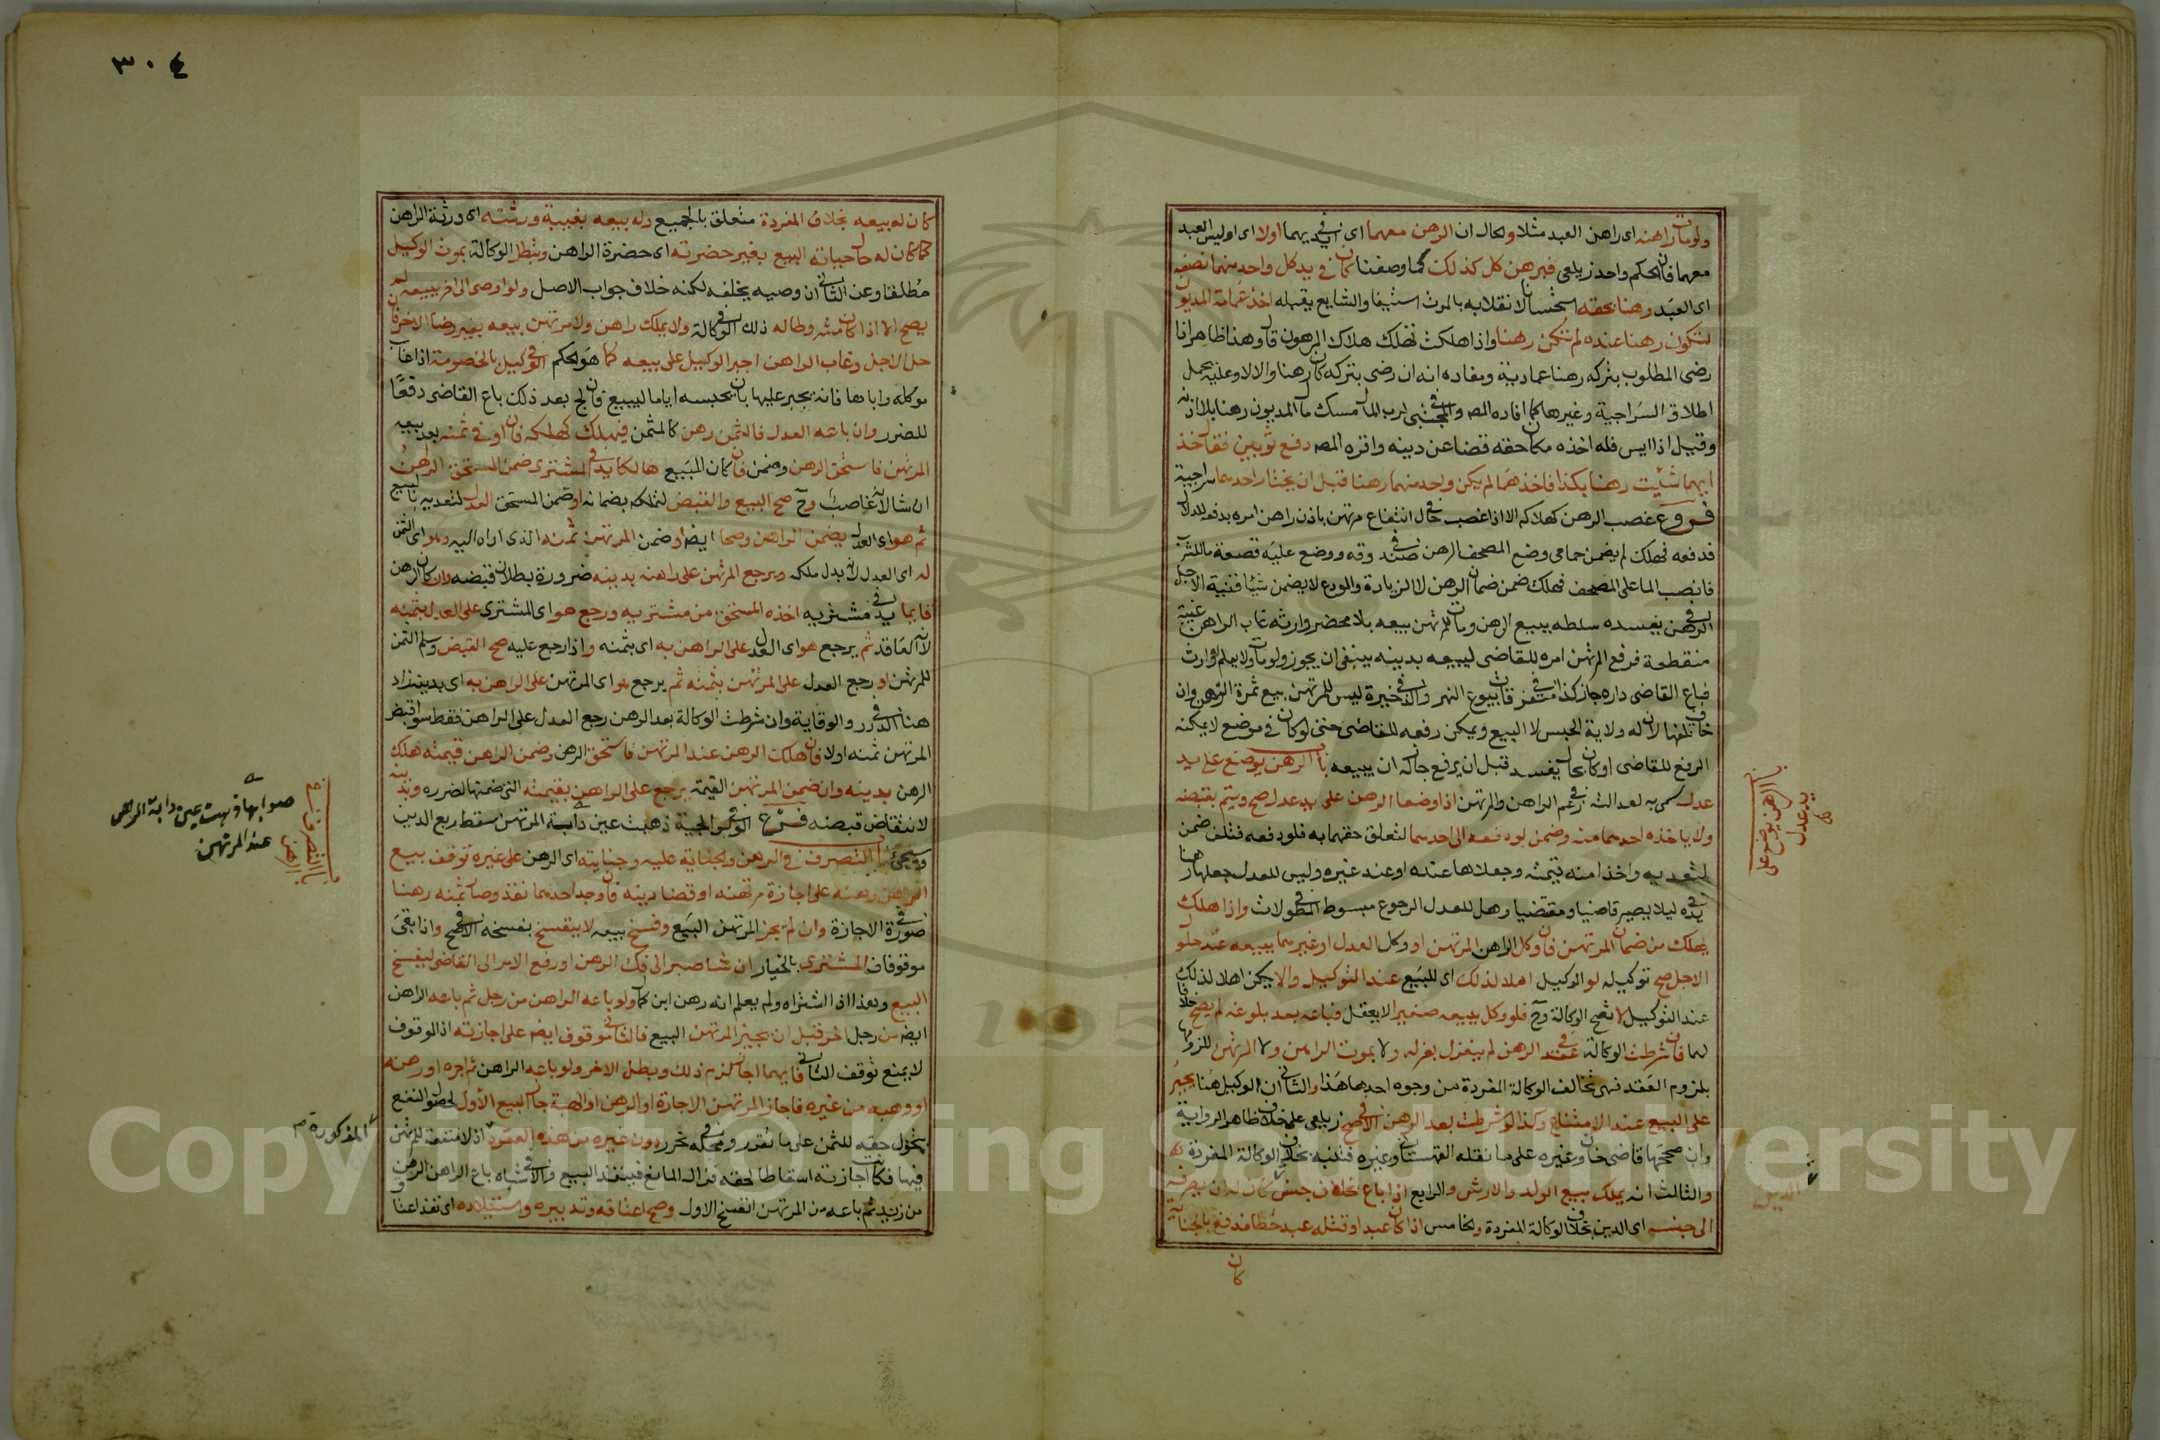 ولومات راهنه اى راهن العبد مثلا والحال ان الرهن معهما اى فى ايديهما اولا اى او ليس العبد
معهما فان الحكم واحد زيلعى فبرهن كل كذلك كما وصفنا كان فى يد كل واحد منهما نصفه
اى العبد رهنا بحقه استحسانا لانقلابه بالموت استيفا والشايع يقبله اخذ عمامة المديون
لتكون رهنا عنده لم تكن رهنا واذا هلكت تهلك هلاك المرهون قال وهذا ظاهر اذا
رضى المطلوب بتركه رهنا عمادية ومفاده انه ان رضى بتركه كان رهنا والا لا وعليه يحمل
اطلاق السراجية وغيرها كما افاده المص وفى المجتبى لرب المال مسك مال المديون رهنا بلا اذنه
وقيل اذا ايس فله اخذه مكان حقه قضا عن دينه واقره المص دفع ثوبين فقال خذ
ايهما شئت رهنا بكذا فاخذهما لم يكن واحد منهما رهنا قبل ان يختار احدهما سراجية
فروع غصب الرهن كهلاكه الا اذا غصب فى حال انتفاع مرتهن باذن راهن امره بدفعه للدلال
فدفعه فهلك لم يضمن حمامى وضع المصحف الرهن فى صندوقه ووضع عليه قصعة ما للشرب
فانصب الما على المصحف فهلك ضمن ضمان الرهن لا الزيادة والمودع لا يضمن شيا قنية الاجل
فى الرهن يفسده سلطه ببيع الرهن ومات للمرتهن بيعه بلا محضر وارثه غاب الراهن غيبة
منقطعة فرفع المرتهن امره للقاضى ليبيعه بدينه ينبغى ان يجوز ولو مات ولا يعلم له وارث
فباع القاضى داره جاز كذا فى متفرقات بيوع النهر وفى الذخيرة ليس للمرتهن بيع ثمرة الرهن وان
خاف تلفها لان له ولاية الحبس لا البيع ويمكن رفعه للقاضى حتى لو كان فى موضع لا يمكنه
الرفع للقاضى او كان بحال يفسد قبل ان يرفع جاز له ان يبيعه باب الرهن يوضع على يد
عدل سمى به لعدالته فى زعم الراهن والمرتهن اذا وضعا الرهن على يد عدل صح ويتم بقبضه
ولا ياخذه احدهما منه وضمن لو دفعه الى احدهما لتعلق حقهما به فلو دفعه فتلف ضمن
لتعديه واخذا منه قيمته وجعلاها عنده او عند غيره وليس للعدل جعلها رهنا
فى يده ليلا يصير قاضيا ومقتضيا وهل للعدل الرجوع مبسوط فى المطولات واذا هلك
يهلك من ضمان المرتهن فان وكل الراهن المرتهن او وكل العدل او غيرهما ببيعه عند حلول
الاجل صح توكيله لو الوكيل اهلا لذلك اى للبيع عند التوكيل والا يكن اهلا لذلك
عند التوكيل لا تصح الوكالة وح فلو وكل ببيعه صغيرا لا يعقل فباعه بعد بلوغه لم يصح خلافا
لهما فان شرطت الوكالة فى عقد الرهن لم ينعزل بعزله ولا بموت الراهن ولا المرتهن للزومها
بلزوم العقد فهى تخالف الوكالة المفردة من وجوه احدها هذا والثانى ان الوكيل هنا يجبر
على البيع عند الامتناع وكذا لو شرطت بعد الرهن فى الاصح زيلعى على خلاف ظاهر الرواية
وان صححها قاضى خان وغيره على ما نقله القهستانى وغيره فتنبه بخلاف الوكالة المفردة
والثالث انه يملك بيع الولد والارش والرابع اذا باع بخلاف جنس كان له ان يصرفه
الى جنسه اى الدين بخلاف الوكالة المفردة والخامس اذا كان عبدا وقتله عبد خطا فدفع بالجناية
كان
باب الرهن يوضع على
يد عدل
الدين
٣٠٤
كان له بيعه بخلاف المفردة متعلق بالجميع وله بيعه بغيبة ورثته اى ورثة الراهن
كما كان له حال حياته البيع بغير حضرته اى حضرة الراهن وتبطل الوكالة بموت الوكيل
مطلقا وعن الثانى ان وصيه يخلفه لكنه خلاف جواب الاصل ولو اوصى الى اخر ببيعه لم
يصح الا اذا كان مشروطا له ذلك فى الوكالة ولا يملك راهن ولا مرتهن بيعه بغير رضا الاخر فان
حل الاجل وغاب الراهن اجبر الوكيل على بيعه كما هو الحكم فى الوكيل بالخصومة اذا غاب
موكله واباها فانه يجبر عليها بان يحبسه اياما ليبيع فان لج بعد ذلك باع القاضى دفعا
للضرر وان باعه العدل فالثمن رهن كالمثمن فيهلك كهلكه فان اوفى ثمنه بعد بيعه
المرتهن فاستحق الرهن وضمن فان كان المبيع هالكا فى يد المشترى ضمن المستحق الراهن
ان شا لانه غاصب وح صح البيع والقبض لتملكه بضمانه او ضمن المستحق العدل لتعديه بالبيع
ثم هو اى العدل يضمن الراهن وصحا ايضا او ضمن المرتهن ثمنه الذى اداه اليه وهو اى الثمن
له اى العدل لانه بدل ملكه ويرجع المرتهن على راهنه بدينه ضرورة بطلان قبضه وان كان الرهن
قايما فى يد مشتريه اخذه المستحق من مشتريه ورجع هو اى المشترى على العدل بثمنه
لانه العاقد ثم يرجع هو اى العدل على الراهن به اى بثمنه واذا رجع عليه صح القبض وسلم الثمن
للمرتهن او رجع العدل على المرتهن بثمنه ثم يرجع هو اى المرتهن على الراهن به اى بدينه زاد
هنا فى الدرر والوقاية وان شرطت الوكالة بعد الرهن رجع العدل على الراهن فقط سوا قبض
المرتهن ثمنه اولا فان هلك الرهن عند المرتهن فاستحق الرهن وضمن الراهن قيمته هلك
الرهن بدينه وان ضمن المرتهن القيمة يرجع على الراهن بقيمته التى ضمنها لضرره وبدينه
لانتقاض قبضه فرع الولوالجية ذهبت عين دابة المرتهن سقط ربع الدين
وسيجئ باب التصرف فى الرهن والجناية عليه وجنايته اى الرهن على غيره توقف بيع
الراهن رهنه على اجازة مرتهنه او قضا دينه فان وجد احدهما نفذ وصار ثمنه رهنا
فى صورة الاجازة وان لم يجز المرتهن البيع وفسخ بيعه لا ينفسخ بفسخه فى الاصح واذا بقى
موقوفا فالمشترى بالخيار ان شا صبر الى فك الرهن او رفع الامر الى القاضى ليفسخ
البيع وهذا اذا اشتراه ولم يعلم انه رهن ابن كمال ولو باعه الراهن من رجل ثم باعه الراهن
ايضا من رجل اخر قبل ان يجيز المرتهن البيع فالثانى موقوف ايضا على اجازته اذ الموقوف
لا يمنع توقف الثانى فايهما اجاز لزم ذلك وبطل الاخر ولو باعه الراهن ثم اجره او رهنه
او وهبه من غيره فاجاز المرتهن الاجارة او الرهن او الهبة جاز البيع الاول لحصول النفع
بتحول حقه للثمن على ما تقرر وفى محله تحرر دون غيره من هذه العقود اذ لا منفعة للمرتهن
فيها فكانت اجازته اسقاطا لحقه فزال المانع فينفذ البيع وفى الاشباه باع الراهن الرهن
من زيد ثم باعه من المرتهن انفسخ الاول وصح اعتاقه وتدبيره واستيلاده اى نفذ اعتا
صوابها ذهبت عين دابة الرهن
عند المرتهن
باب التصرف فى
الرهن
المذكورة صح
Copyright © King Saud University
1957